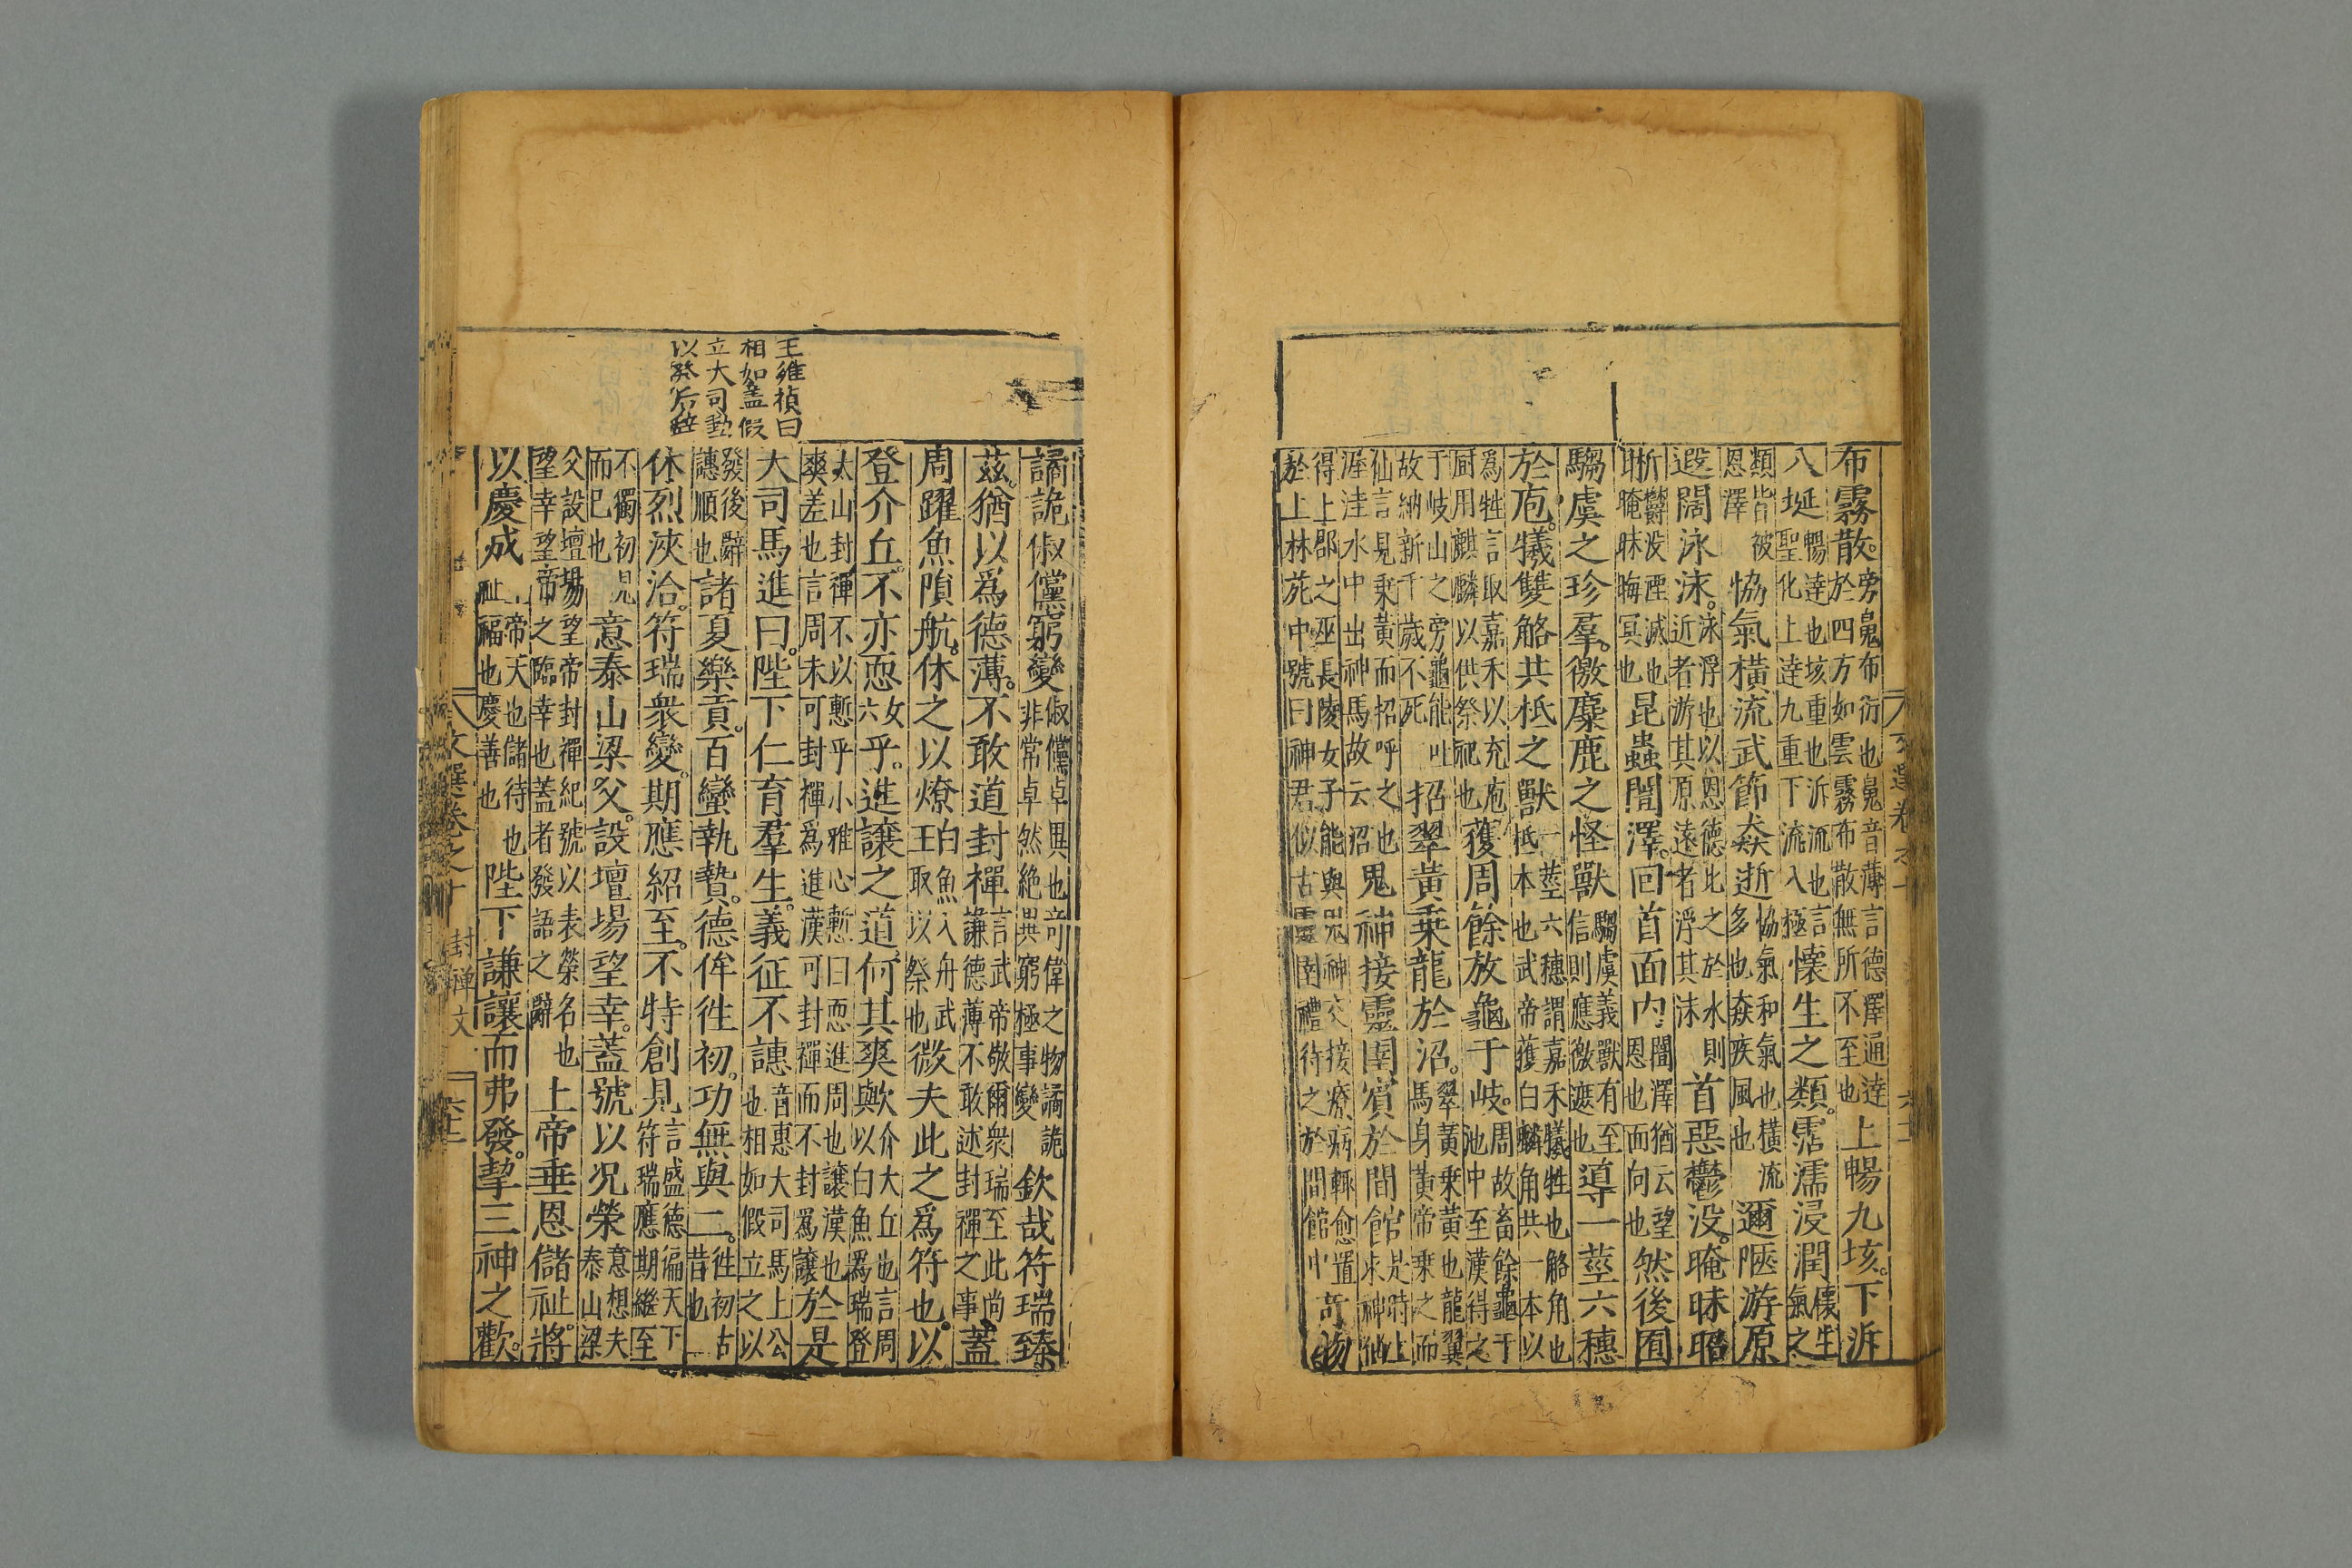 布霧散。旁鬼布衍也鬼音薄言德澤通達於四方如雲霧布散無所不至也上暢九垓。下泝
八埏暢達也垓重也泝流也言聖化上達九重下流入極懷生之類。霑濡浸潤懷生氣之
類皆被恩澤協氣橫流武節猋逝協氣和氣也橫流多也猋疾風也邇陿游原
遐闊泳沫。泳浮也以恩德此之於水則近者游其原遠者浮其沫首惡鬱没。晻昧昭
晣鬱没湮滅也晻昧晦冥也昆蟲闓澤。回首面内闓澤猶云望恩也面向也然後囿
騶虞之珍羣。徼麋鹿之怪獸騶虞義獸有至信則應徼遮也導一莖六穗
於庖。犧雙觡共柢之獸一莖六穗謂嘉禾犧牲也觡角也柢本也武帝獲白麟角共一本以
爲牲言取嘉禾以充庖厨用麒麟以供祭祀也獲周餘放龜于岐。周故畜餘龜于池中至漢得之
于岐山之旁龜能吐故納新千歲不死招翠黃乘龍於沼。翠黃乘黃也龍翼馬身黃帝乘之而
仙言見乘黃而招呼之也渥洼水中出神馬故云沼鬼神接靈圉賓於閒館是時上求神仙
得上郡之巫長陵女子能與鬼神交接療病輒愈置於上林苑中號曰神君似古靈圉禮待之於閒館中奇物
譎詭俶儻窮變俶儻卓異也奇偉之物譎詭非常卓然絶異窮極事變欽哉符瑞臻。
茲。猶以爲德薄。不敢道封禪言武帝敬爾衆瑞至此尚謙德薄不敢述封禪之事蓋
周躍魚隕航。休之以燎白魚入舟武王取以祭也微夫此之爲符也。以
登介丘。不亦恧女六乎。進讓之道。何其爽歟介大丘也言周以白魚爲瑞登
太山封禪不以慙乎小雅心慙曰恧進周也讓漢也爽差也言周未可封禪爲進漢可封禪而不封爲讓於是
大司馬進曰。陛下仁育羣生。義征不譓音惠大司馬上公也相如假立之以
發後辭譓順也諸夏樂貢。百蠻執贄。德侔徃初。功無與二。徃初古昔也
休烈浹洽。符瑞衆變。期應紹至。不特創見言盛德徧天下符瑞應期繼至
不獨初見而已也意泰山梁父。設壇場望幸。蓋號以况榮意想夫泰山梁
父設壇場望帝封禪紀號以表榮名也望幸望帝之臨幸也蓋者發語之辭上帝垂恩儲祉。將
以慶成上帝天也儲待也祉福也慶善也陛下謙讓而弗發。挈三神之歡。
王維楨曰
相如蓋假
立大司馬
以發后辭
文選卷之十 封禪文